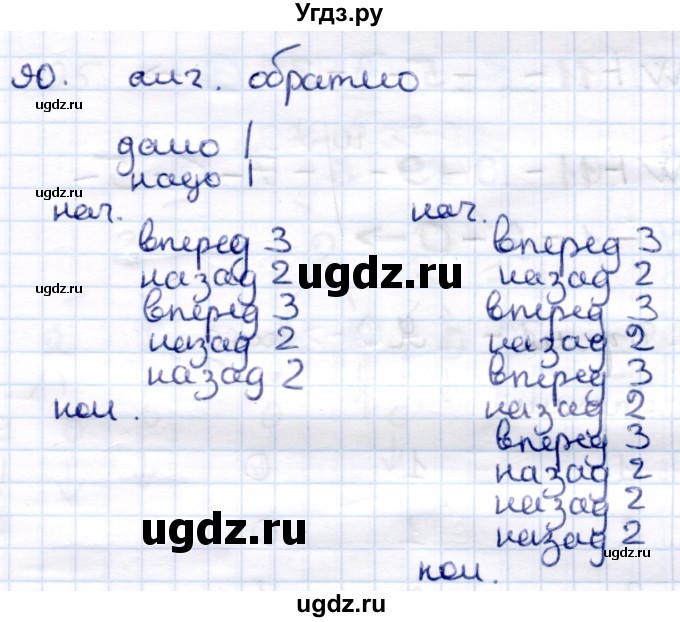 Угдз.ру
90. алг. обратно
ugdz.ru
дано |
надо |
ugdz.ru
нач.
вперед 3
назад 2
ugdz.ru
вперед 3
назад 2
назад 2
кон.
нач.
вперед 3
назад 2
вперед 3
назад 2
вперед 3
назад 2
вперед 3
назад 2
назад 2
назад 2
кон.
ugdz.ru
ugdz.ru
ugdz.ru
ugdz.ru